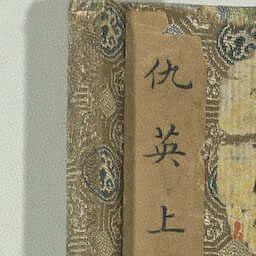 仇英上